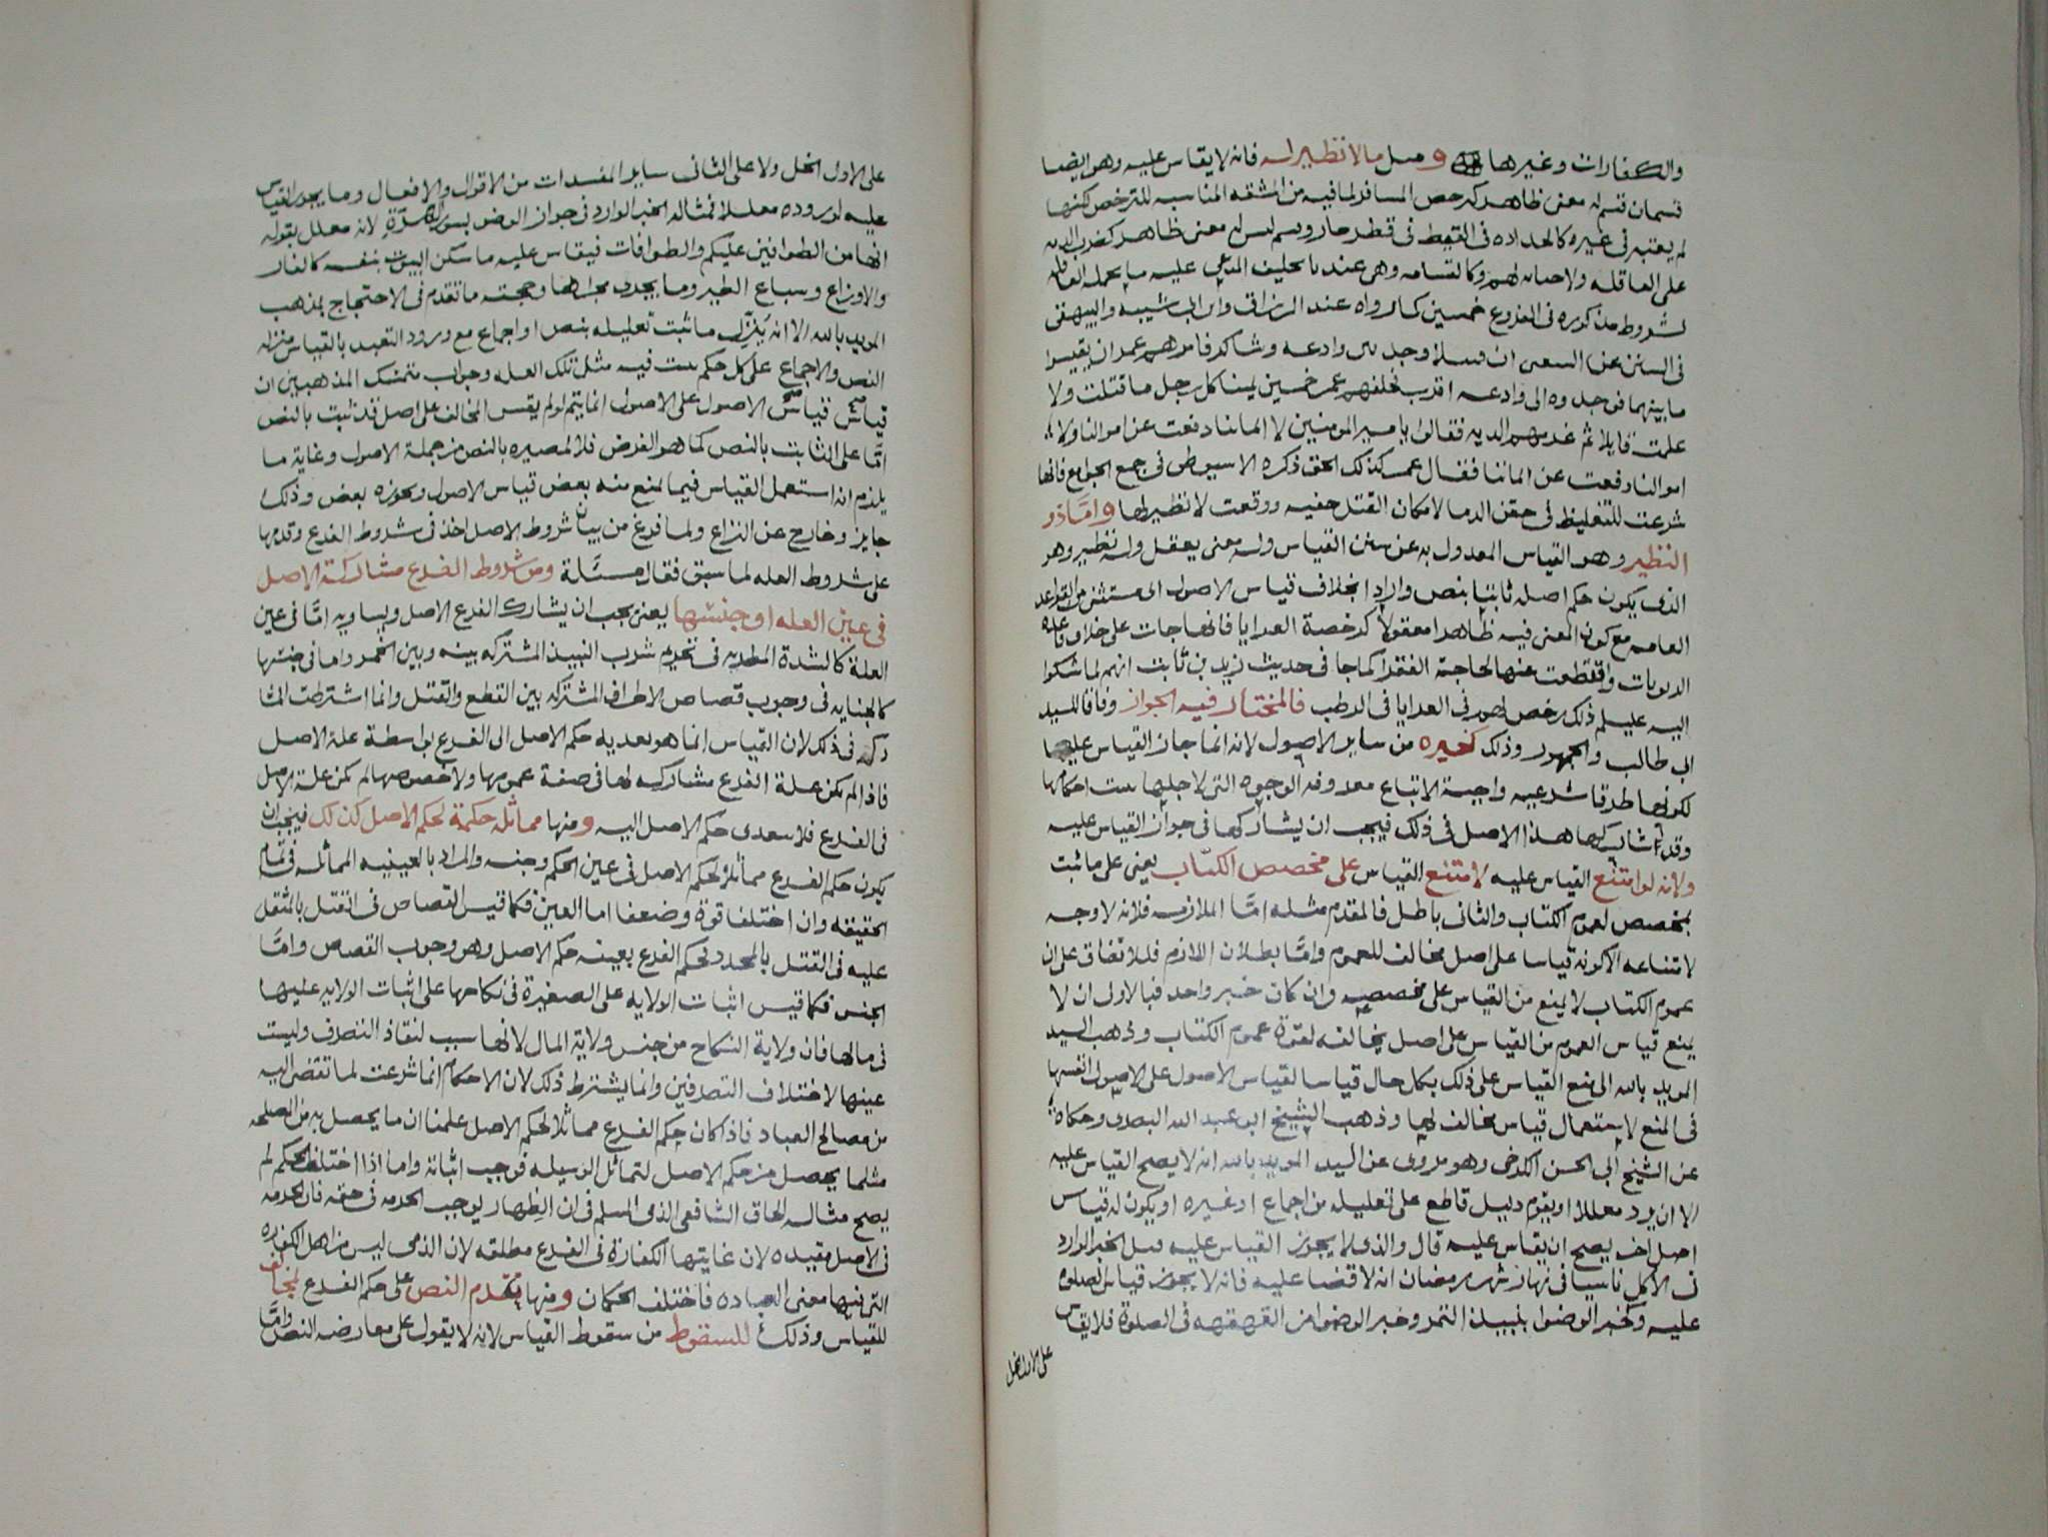 والكفارات وغيرها و مثل مالا نظير له فانه لا يقاس عليه وهو ايضا
قسمان قسم له معنى ظاهر كترخص المسافر لما فيه من المشقه المناسبه للترخص لكنها
لم يعتبر في غيره كالحداده في القيظ في قطر حار وقسم ليس له معنى ظاهر كضرب الديه
على العاقله ولا جنايه لهم وكالقسامه وهي عندنا تحليف المدعى عليه ما يحمله العاقله
لشروط مذكوره في الفروع خمسين كما رواه عبد الرزاق وابن ابي شيبه والبيهقي
في السنن عن الشعبى ان قتيلا وجد بين وادعه وشاكر فامرهم عمر ان يقيسوا
ما بينهما فوجدوه الى وادعه اقرب فحلفهم عمر خمسين يمينا كل رجل ما قتلت ولا
علمت قاتلا ثم غرمهم الديه فقالوا يا امير المومنين لا ايماننا دفعت عن اموالنا ولا
اموالنا دفعت عن ايماننا فقال عمر كذلك الحق ذكره الاسيوطي في جمع الجوامع فانها
شرعت للتغليظ في حقن الدما لامكان القتل خفيه ووقعت لا نظير لها واما ذو
النظير وهو القياس المعدول به عن سنن القياس وله معنى يعقل وله نظير وهو
الذي يكون حكم اصله ثابتا بنص وارد بخلاف قياس الاصول اى مستثنى من القواعد
العامه مع كون المعنى فيه ظاهرا معقولا كرخصة العرايا فانها جات على خلاف قاعدة
الربويات واقتطعت عنها لحاجة الفقرا كما جا في حديث زيد بن ثابت انهم لما شكوا
اليه عليلم ذلك رخص لهم في العرايا في الرطب فالمختار فيه الجواز وفاقا للسيد
ابى طالب والجمهور وذلك كغيره من ساير الاصول لانه انما جاز القياس عليها
لكونها طرقا شرعيه واجبة الاتباع معروفه الوجوه التى لاجلها ثبت احكامها
وقد شاركها هذا الاصل في ذلك فيجب ان يشاركها في جواز القياس عليه
ولانه لو امتنع القياس عليه لامتنع القياس على مخصص الكتاب يعنى على ما ثبت
بمخصص لعموم الكتاب والثانى باطل فالمقدم مثله اما الملازمه فلانه لا وجه
لامتناعه الا كونه قياسا على اصل مخالف للعموم واما بطلان اللازم فللاتفاق على ان
عموم الكتاب لا يمنع من القياس على مخصصه وان كان خبر واحد فبالاولى ان لا
يمنع قياس العموم من القياس على اصل يخالفه لقوة عموم الكتاب وذهب السيد
المويد بالله الى منع القياس على ذلك بكل حال قياسا لقياس الاصول على الاصول انفسها
في المنع لاستعمال قياس مخالف لهما وذهب الشيخ ابو عبد الله البصرى وحكاه
عن الشيخ ابى الحسن الكرخى وهو مروى عن السيد المويد بالله انه لا يصح القياس عليه
الا ان يرد معللا او يقوم دليل قاطع على تعليله من اجماع او غيره او يكون له قياس
اصل اخر يصح ان يقاس عليه قال والذى لا يجوز القياس عليه مثل الخبر الوارد
في الاكل ناسيا في نهار شهر رمضان انه لا قضا عليه فانه لا يجوز قياس الصلوة
عليه وكخبر الوضوا بنبيذ التمر وخبر الوضوا من القهقهه في الصلوة فلا يقاس
على الاول الخل
على الاول الخل ولا على الثانى ساير المفسدات من الاقوال والافعال وما يجوز القياس
عليه لوروده معللا فمثاله الخبر الوارد في جواز الوضو بسور الهرة لانه معلل بقوله
انها من الطوافين عليكم والطوافات فيقاس عليه ما سكن البيوت بنفسه كالفار
والاوزاغ وسباع الطير وما يجرى مجراها وحجته ما تقدم في الاحتجاج لمذهب
المويد بالله الا انه ينزل ما ثبت تعليله بنص او اجماع مع ورود التعبد بالقياس منزلة
النص والاجماع على كل حكم ثبت فيه مثل تلك العله وجواب متمسك المذهبين ان
قياس قياس الاصول على الاصول انما يتم لو لم يقس المخالف على اصل قد ثبت بالنص
اما على الثابت بالنص كما هو الفرض فلا لمصيره بالنص من جملة الاصول وغاية ما
يلزم انه استعمل القياس فيما يمنع منه بعض قياس الاصول ويجوزه بعض وذلك
جايز وخارج عن النزاع ولما فرغ من بيان شروط الاصل اخذ في شروط الفرع وقدمها
على شروط العله لما سبق فقال مسئلة ومن شروط الفرع مشاركة الاصل
في عين العله او جنسها يعنى يجب ان يشارك الفرع الاصل ويساويه اما في عين
العلة كالشدة المطربه في تحريم شرب النبيذ المشتركه بينه وبين الخمر واما في جنسها
كالجنايه في وجوب قصاص الاطراف المشتركه بين القطع والقتل وانما اشترطت المشا
ركه في ذلك لان القياس انما هو تعديه حكم الاصل الى الفرع بواسطة علة الاصل
فاذا لم يكن علة الفرع مشاركه لها في صفة عمومها ولا خصوصها لم يكن علة الاصل
في الفرع فلا يتعدى حكم الاصل اليه ومنها مماثلة حكمه لحكم الاصل كذلك فيجب ان
يكون حكم الفرع مماثلا لحكم الاصل في عين الحكم وجنسه والمراد بالعينيه المماثله في تمام
الحقيقه وان اختلفا قوة وضعفا اما العين فكما قيس القصاص في القتل بالمثقل
عليه في القتل بالمحدد فحكم الفرع بعينه حكم الاصل وهو وجوب القصاص واما
الجنس فكما قيس اثبات الولايه على الصغيرة في نكاحها على اثبات الولايه عليها
في مالها فان ولاية النكاح من جنس ولاية المال لانها سبب لنفاذ التصرف وليست
عينها لاختلاف التصرفين وانما يشترط ذلك لان الاحكام انما شرعت لما تقتضى اليه
من مصالح العباد فاذا كان حكم الفرع مماثلا لحكم الاصل علمنا ان ما يحصل به من المصلحه
مثلما يحصل من حكم الاصل لتماثل الوسيله فوجب اثباته واما اذا اختلف الحكم لم
يصح مثاله الحاق الشافعى الذمى بالمسلم في ان الظهار يوجب الحرمه في حقه فان الحرمه
في الاصل مقيده لان غايتها الكفارة في الفرع مطلقه لان الذمى ليس من اهل الكفاره
التى فيها معنى العباده فاختلف الحكمان ومنها تقدم النص على حكم الفرع لمخالف
للقياس وذلك للسقوط من سقوط القياس لانه لا يقوى على معارضه النص واما